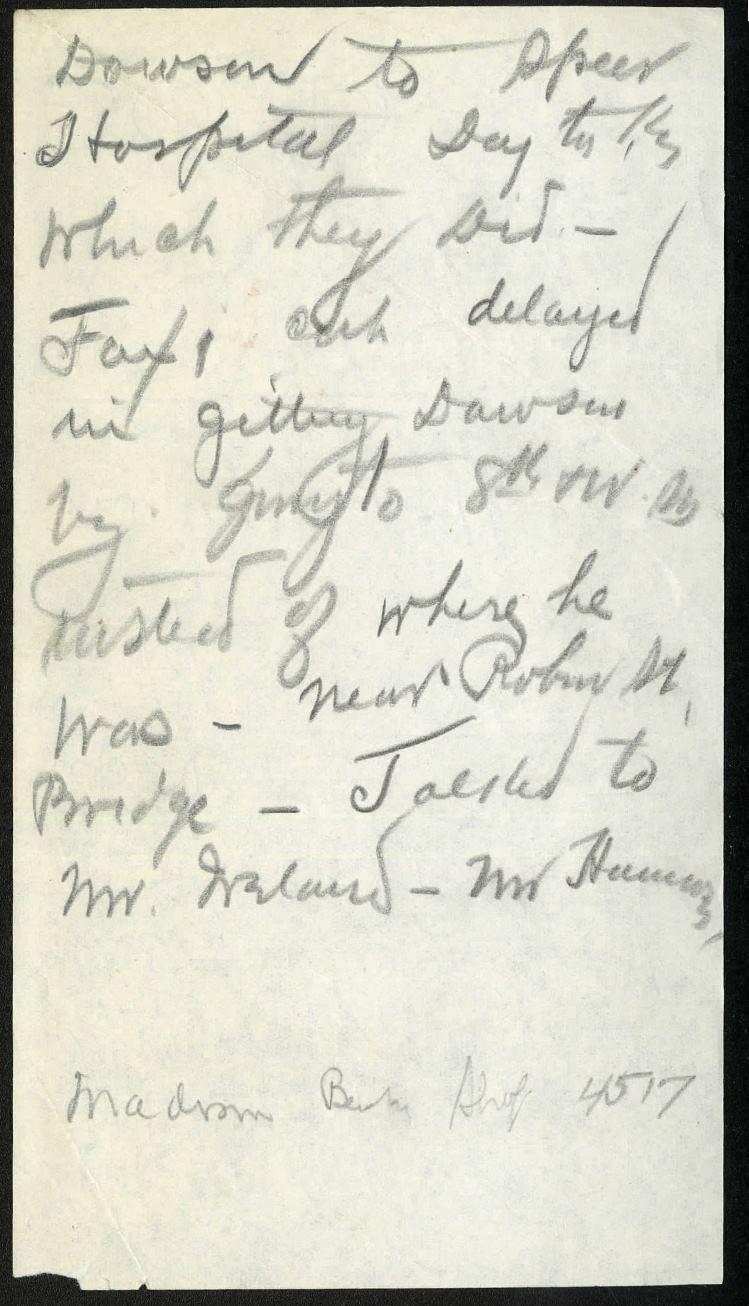 Dawson to Speer
Hospital Day ton Ky
which they did —
Taxi cab delayed
in getting Dawson
by going to 8th
instead of where he
was — near Roberts St,
Bridge — Talked to
Mr. Ireland — Mr
Madison 4517